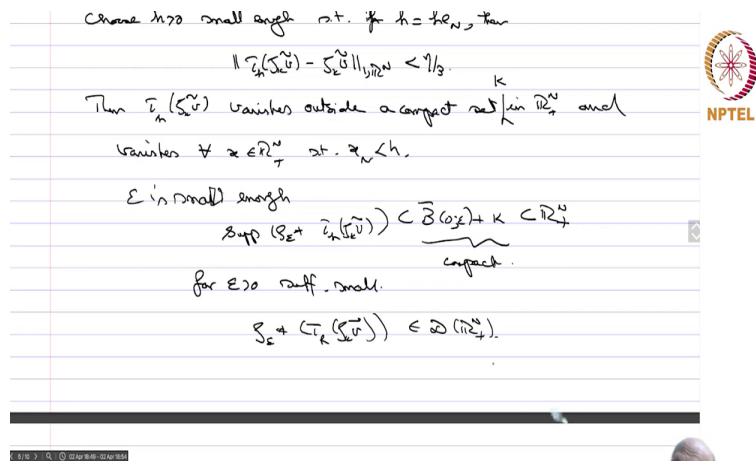 Choose h>0 small enough s.t. if h = he_N, then
‖ τ_h(ζ_k ṽ) − ζ_k ṽ ‖_{1,ℝ^N} < η/3.
Then τ_h(ζ_k ṽ) vanishes outside a compact set K in ℝ^N_+ and
vanishes ∀ x ∈ ℝ^N_+ s.t. x_N < h.
ε is small enough
supp (ρ_ε * τ_h(ζ_k ṽ)) ⊂ B̄(0;ε) + K ⊂ ℝ^N_+
compact.
for ε>0 suff. small.
ρ_ε * (τ_h(ζ_k ṽ)) ∈ 𝒟(ℝ^N_+).
NPTEL
5/10 02 Apr 18:49 - 02 Apr 18:54